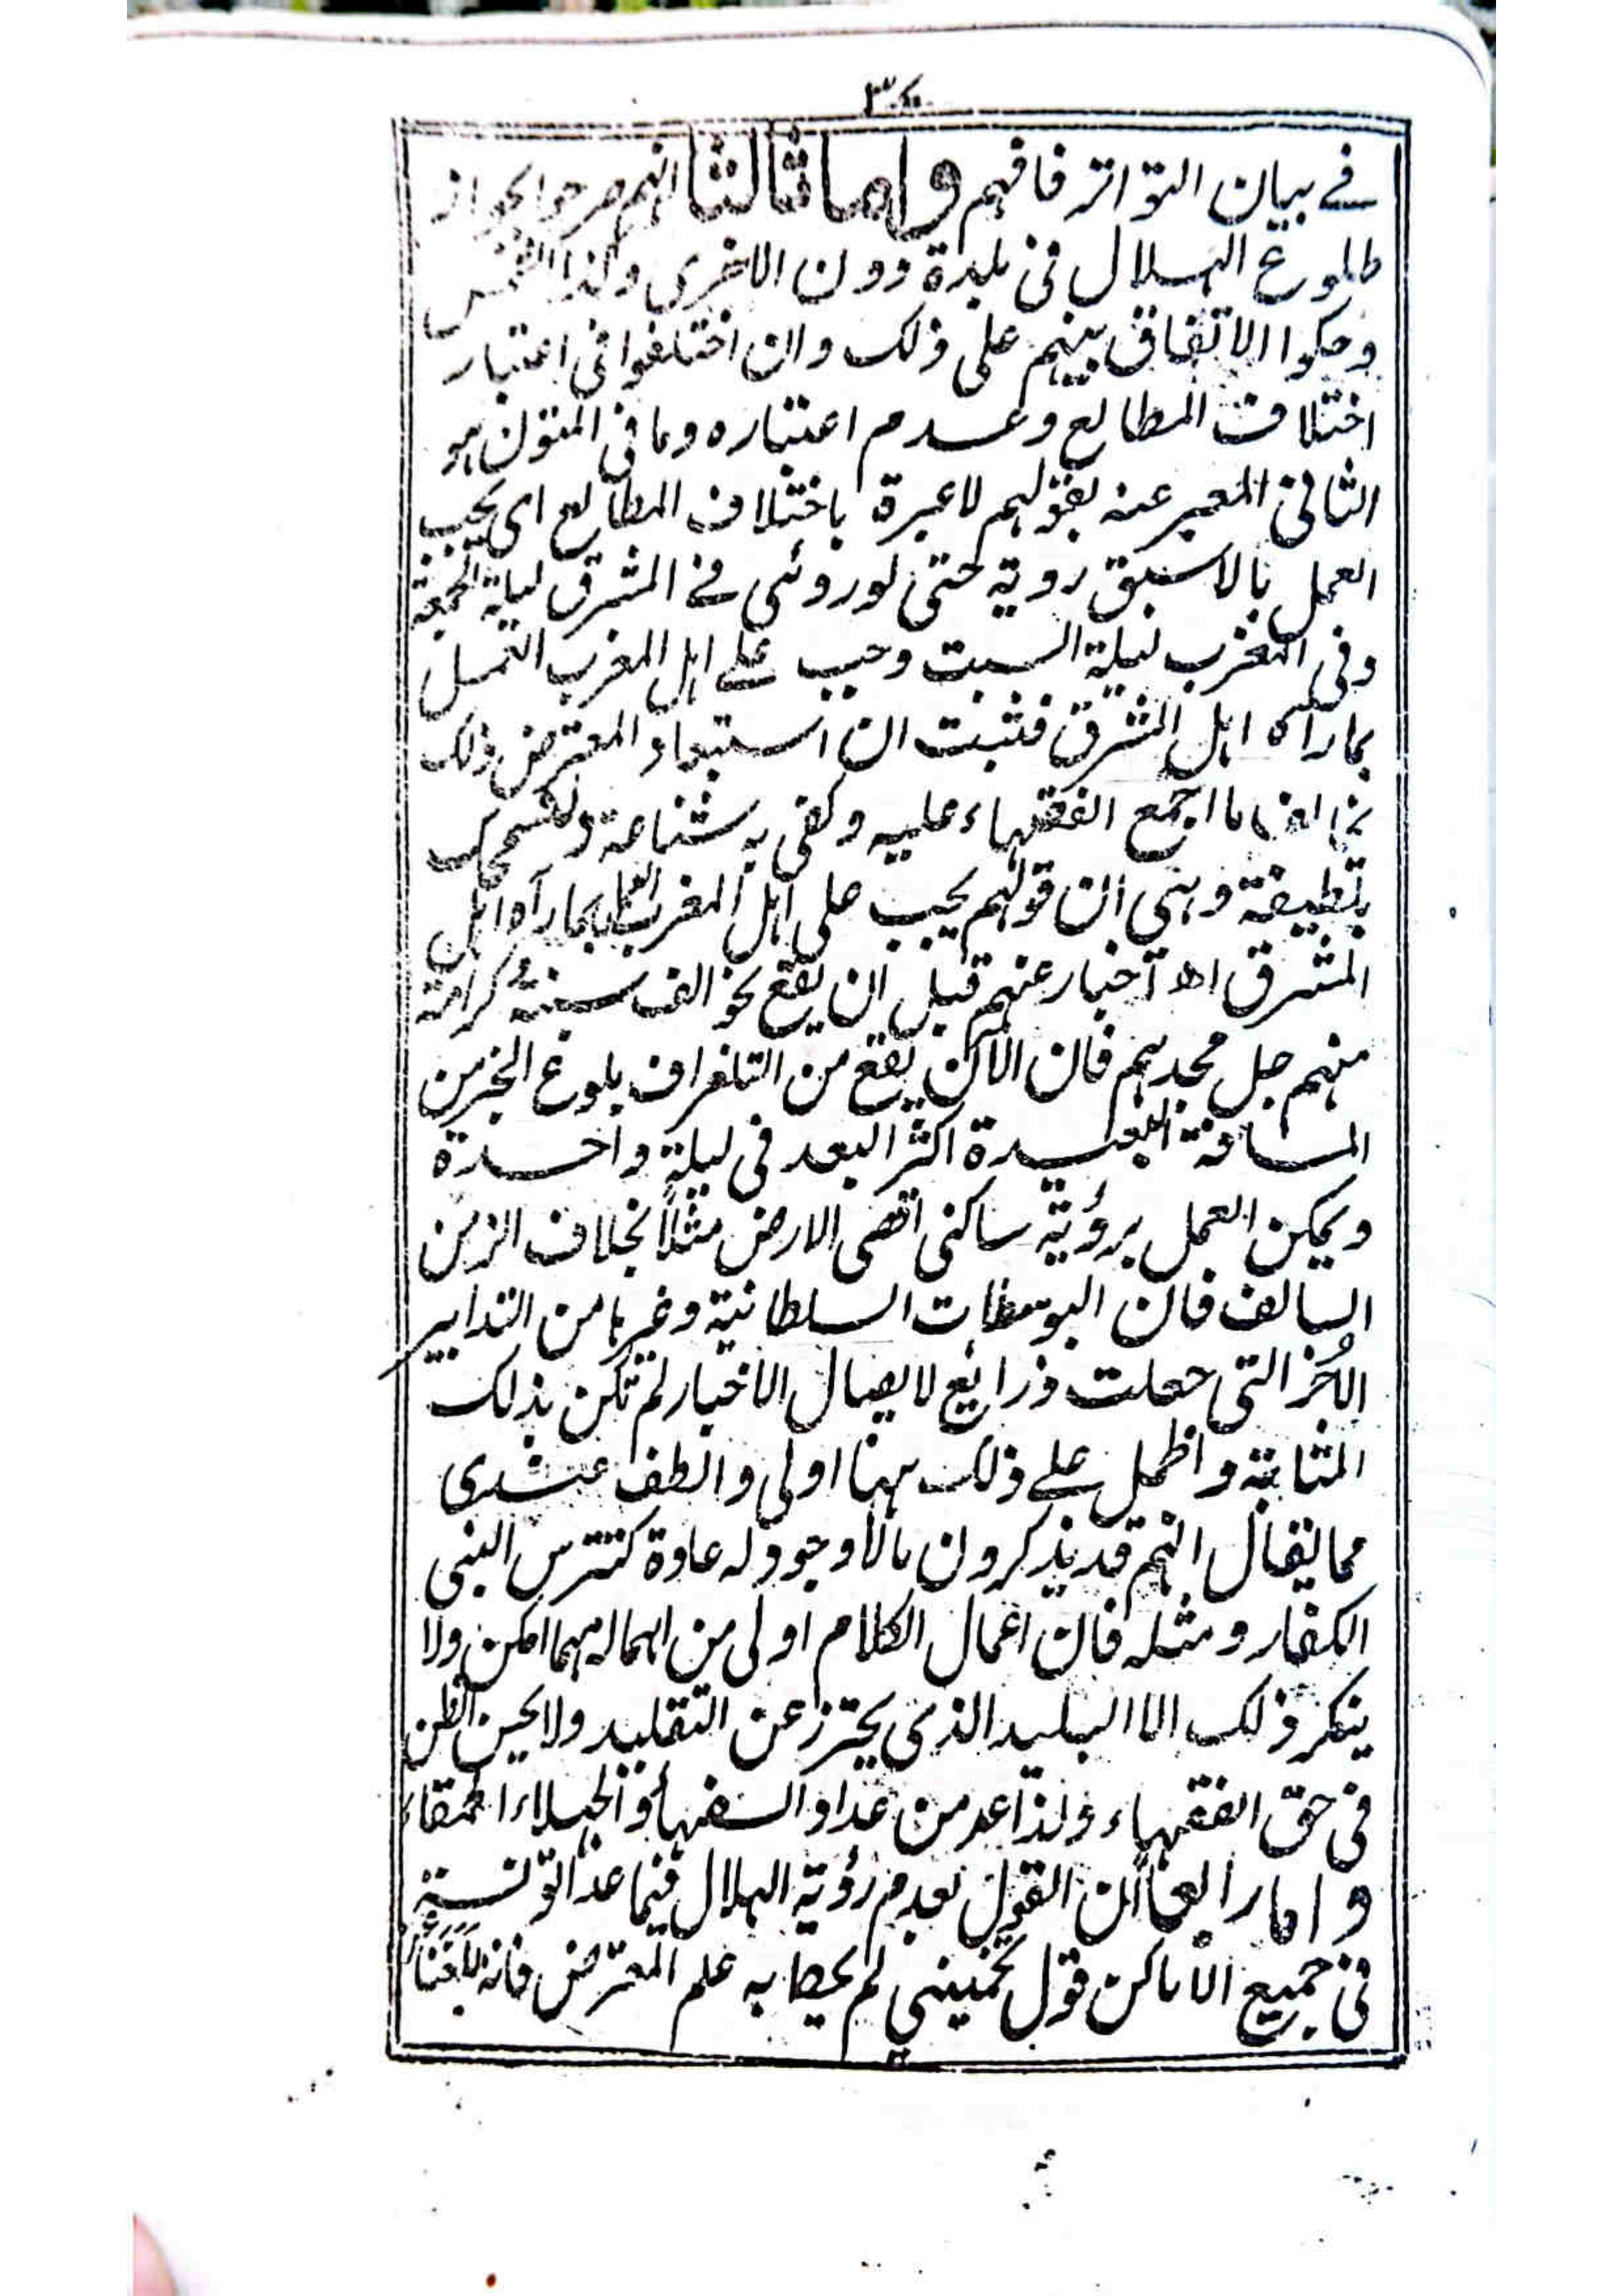 في بيان التواتر فافهم واما ثالثا انهم صرحوا بجواز
طلوع الهلال في بلدة دون الاخرى وكذا الشمس
وحكوا الاتفاق بينهم على ذلك وان اختلفوا في اعتبار
اختلاف المطالع وعدم اعتباره وما في المتون هو
الثاني المعبر عنه بقولهم لا عبرة باختلاف المطالع اى يجب
العمل بالاسبق روية حتى لو روئى في المشرق ليلة الجمعة
وفي المغرب ليلة السبت وجب على اهل المغرب العمل
بما رآه اهل المشرق فثبت ان استبعاد المعترض ذلك
يخالف ما اجمع الفقهاء عليه وكفى به شناعة
بلطيفة وهى ان قولهم يجب على اهل المغرب العمل بما رآه اهل
المشرق اه اخبار عنهم قبل ان يقع بنحو الف سنة كرامة
منهم جل مجدهم فان الآن يقع من التلغراف بلوغ الخبر من
المسافة البعيدة اكثر البعد في ليلة واحدة
ويمكن العمل برؤية ساكنى اقصى الارض مثلا بخلاف الزمن
السالف فان البوسطات السلطانية وغيرها من التدابير
الأخر التى جعلت ذرايع لايصال الاخبار لم تكن بذلك
المثابة والحمل على ذلك ههنا اولى والطف عندى
مما يقال انهم قد يذكرون ما لا وجود له عادة كتترس النبى
الكفار ومثله فان اعمال الكلام اولى من اهماله مهما امكن ولا
ينكر ذلك الا البليد الذى يحترز عن التقليد ولا يحسن الظن
فى حق الفقهاء ولذا عد من عداد السفهاء والجهلاء الحمقاء
واما رابعا لان القول بعدم رؤية الهلال فيما عدا التونسة
فى جميع الاماكن قول تخمينى لم يحط به علم المعترض فانه